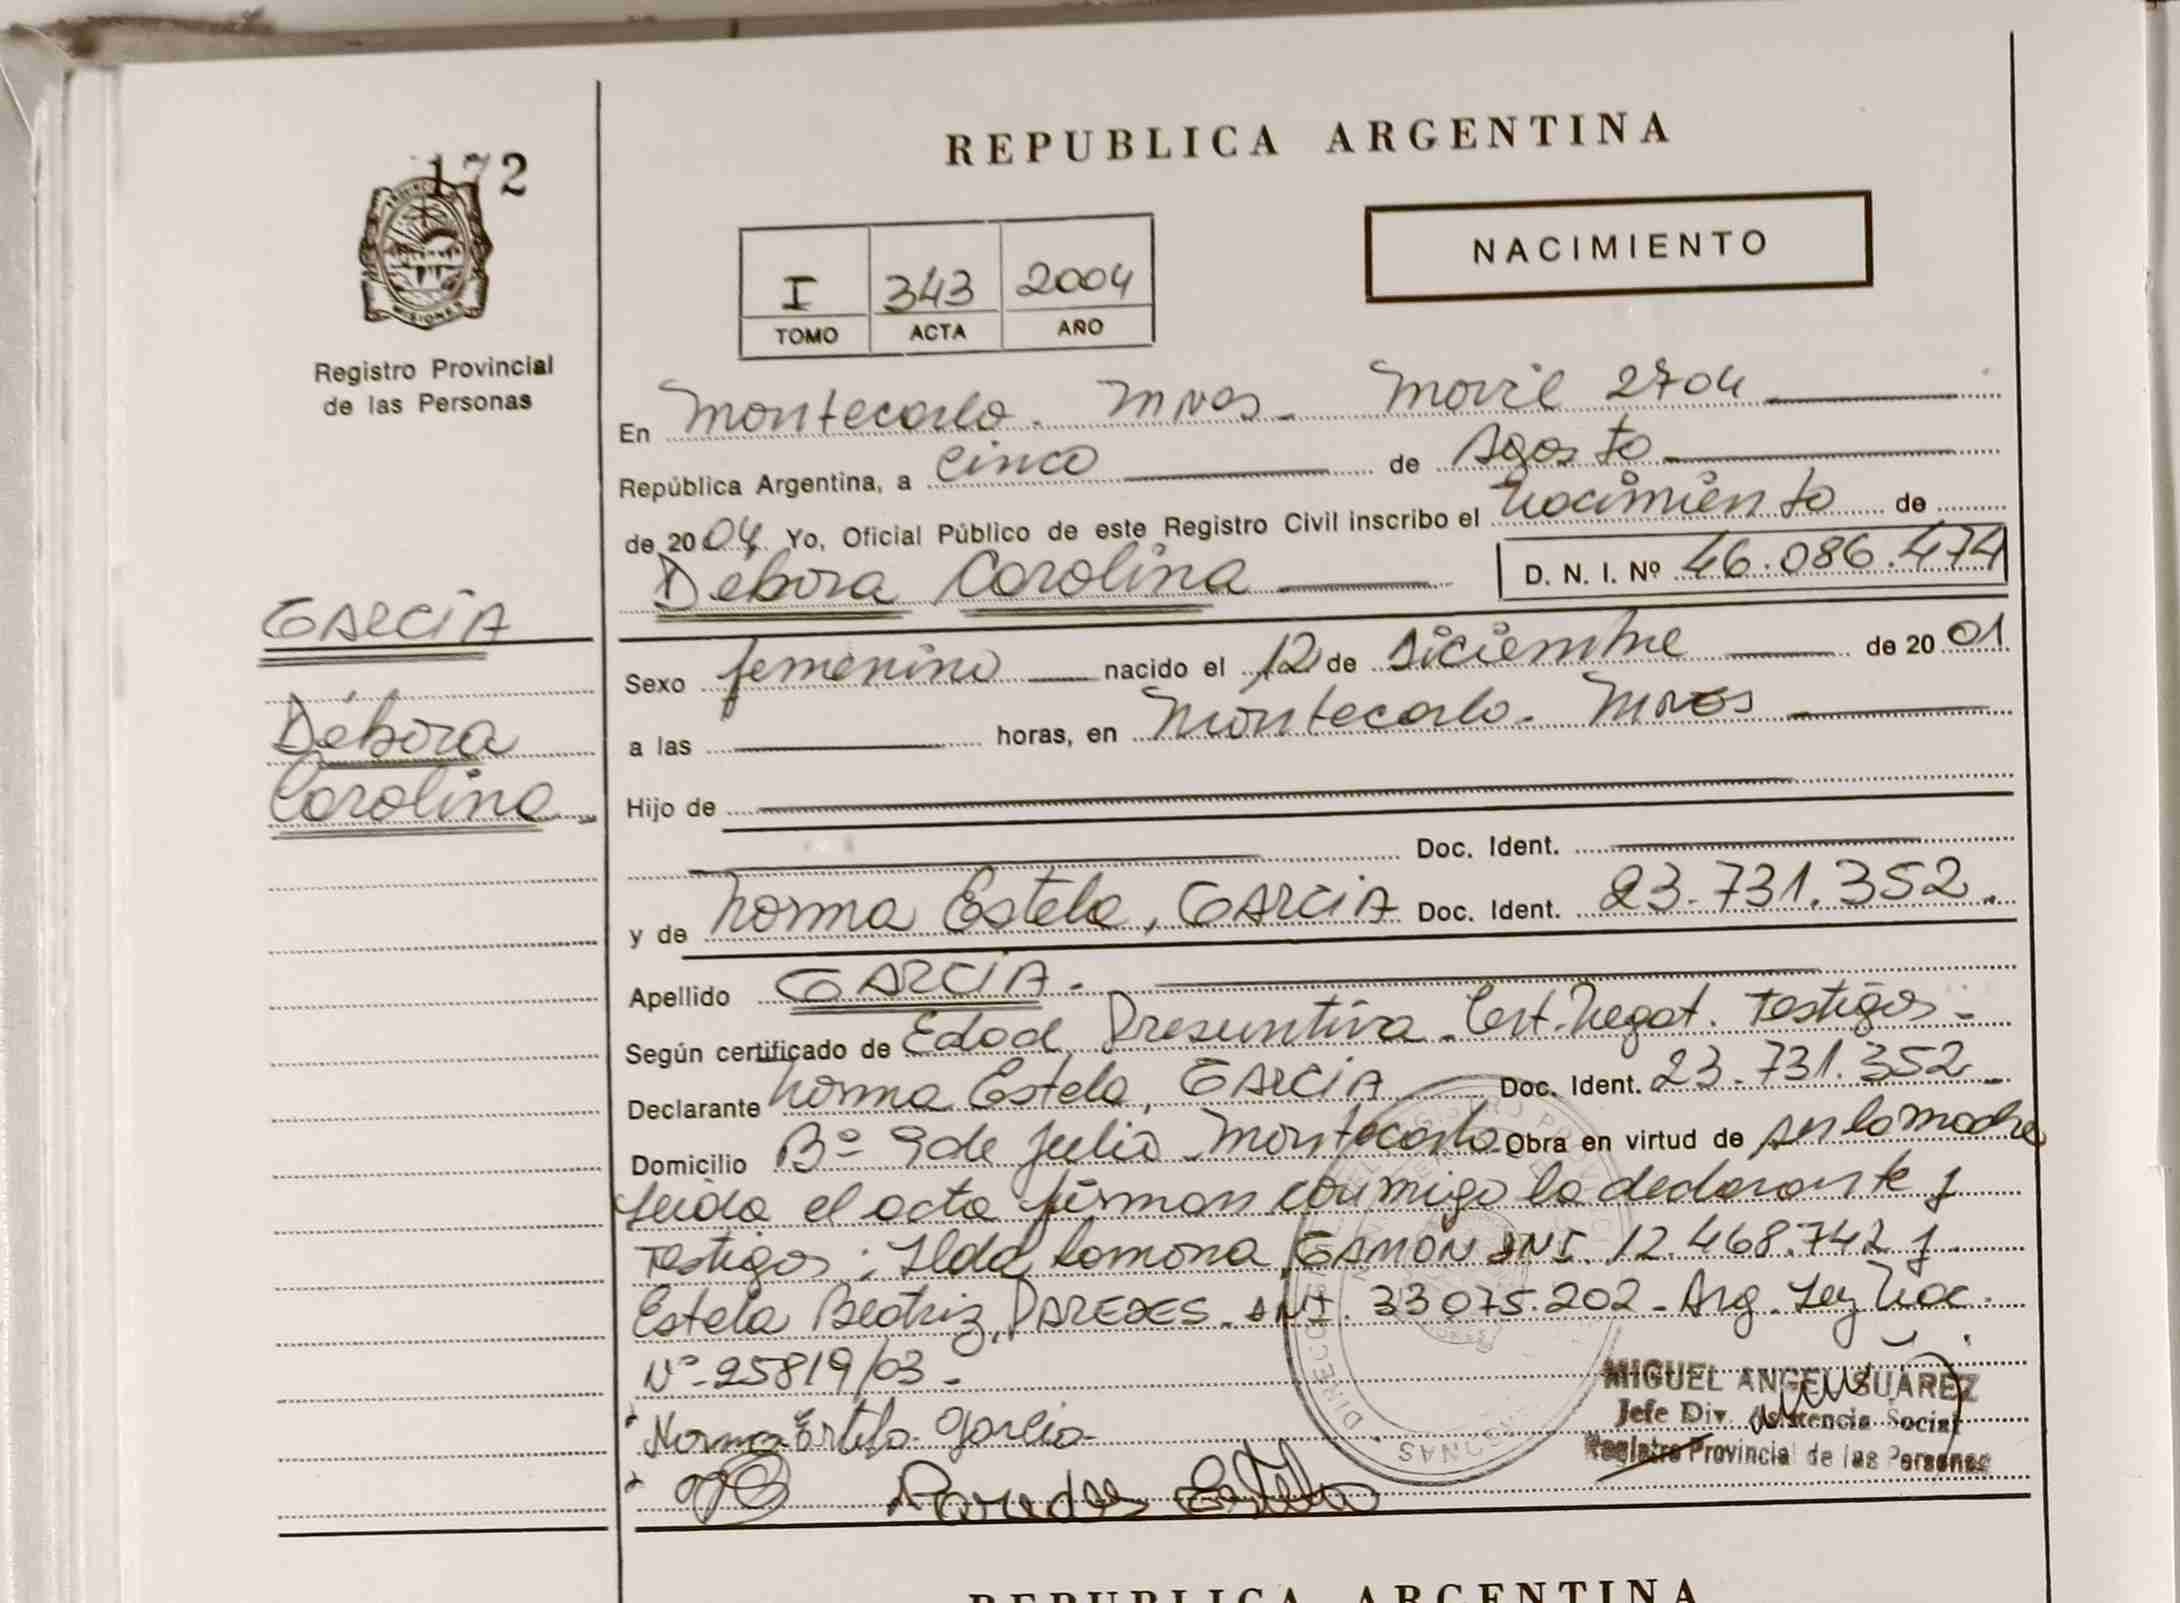 172
REPUBLICA ARGENTINA
NACIMIENTO
I 343 2004
TOMO ACTA AÑO
Registro Provincial
de las Personas
GARCÍA
Débora
Carolina
En Montecarlo. Mnes. Movil 2704
República Argentina, a cinco de Agosto
de 2004 Yo, Oficial Público de este Registro Civil inscribo el nacimiento de
Débora Carolina D. N. I. Nº 46.086.474
Sexo femenino nacido el 12 de Diciembre de 2001
a las horas, en Montecarlo. Mnes
Hijo de
Doc. Ident.
y de Norma Estela, GARCIA Doc. Ident. 23.731.352.
Apellido GARCÍA.
Según certificado de Edad Presuntiva. Cert. Negat. Testigos.
Declarante Norma Estela, GARCIA Doc. Ident. 23.731.352
Domicilio Bº 9 de Julio Montecarlo Obra en virtud de ser la madre
Leida el acta firman conmigo la declarante y
Testigos: Ilda Ramona, GAMON DNI. 12.468.742 y
Estela Beatriz, PAREDES. DNI. 33.075.202. Arg. Ley Nac.
Nº 25819/03.
Norma Estela Garcia
Paredes Estela
MIGUEL ANGEL SUÁREZ
Jefe Div. Asistencia Social
Registro Provincial de las Personas
REPUBLICA ARGENTINA